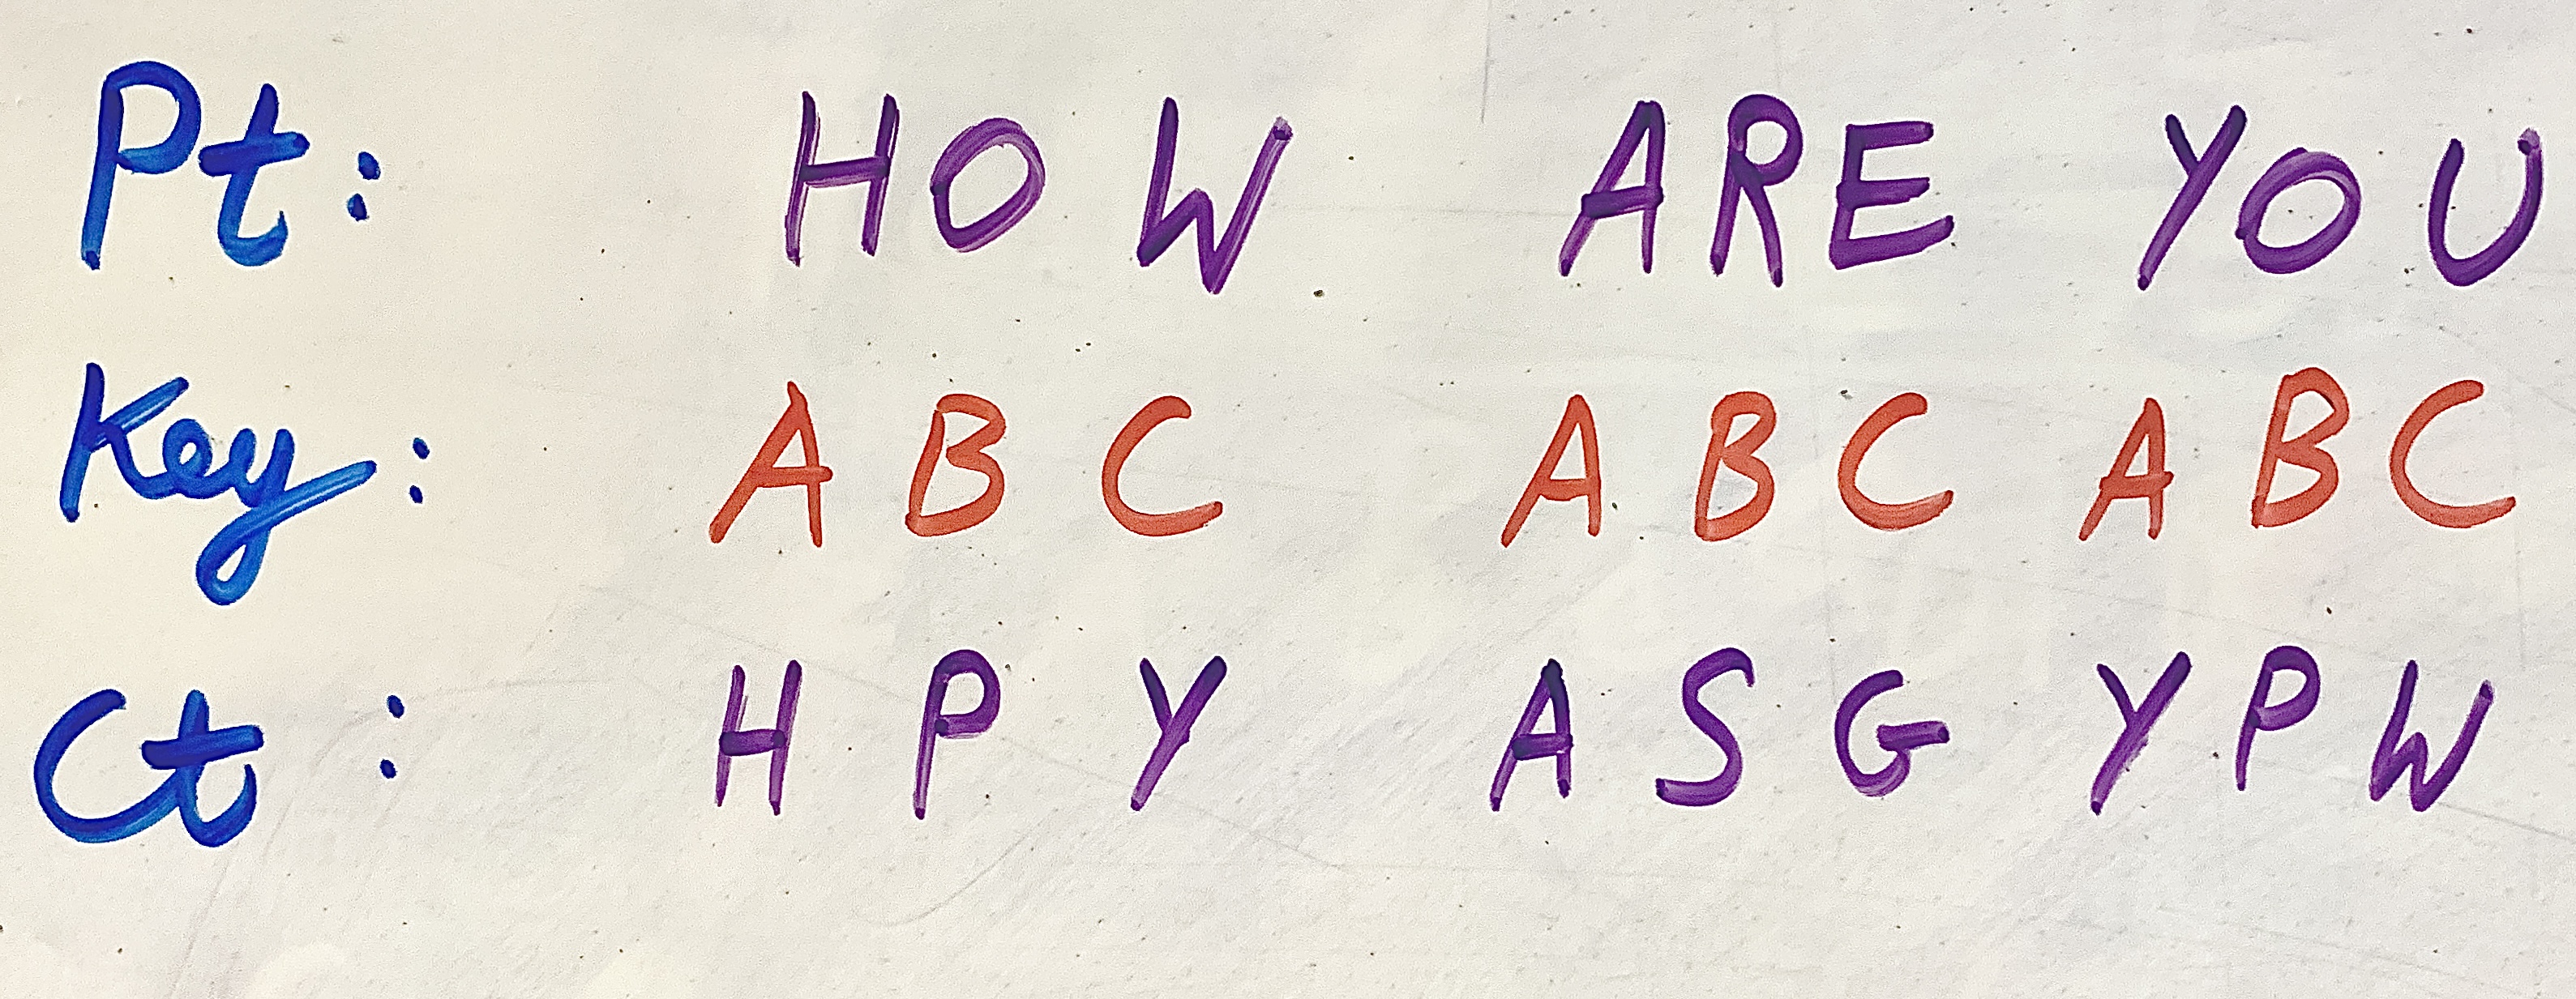 Pt: HOW ARE YOU
Key: ABC ABC ABC
Ct: HPY ASG YPW